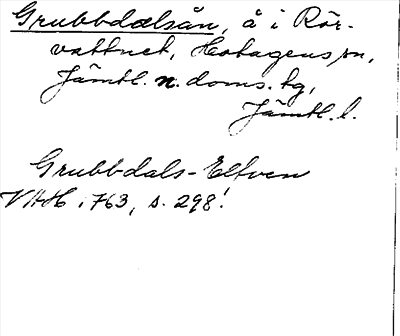 Grubbdalsån, å i Rör-
vattnet, Hotagens sn,
Jämtl. n. doms. tg,
Jämtl. l.
Grubbdals-Elfven
VAH i 763, s. 298!